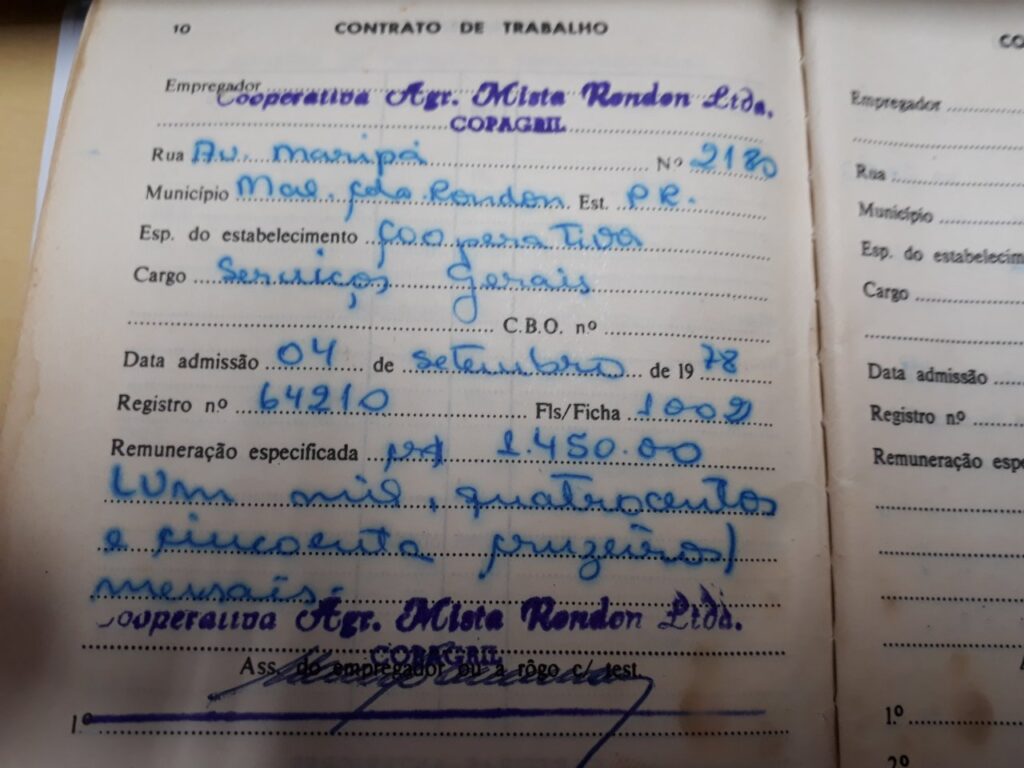 10 CONTRATO DE TRABALHO
Empregador Cooperativa Agr. Mista Rondon Ltda.
COPAGRIL
Rua Av. Maripá Nº 2180
Município Mal. Cdo. Rondon Est. PR.
Esp. do estabelecimento Cooperativa
Cargo Serviços Gerais
C.B.O. nº
Data admissão 04 de setembro de 1978
Registro nº 64210 Fls/Ficha 1002
Remuneração especificada Cr$ 1.450.00
(Um mil, quatrocentos
e cincoenta cruzeiros)
mensais.
Cooperativa Agr. Mista Rondon Ltda.
COPAGRIL
Ass. do empregador ou a rôgo c/ test.
1º
CO
Empregador
Rua
Município
Esp. do estabelecim
Cargo
Data admissão
Registro nº
Remuneração espe
1.º
2º